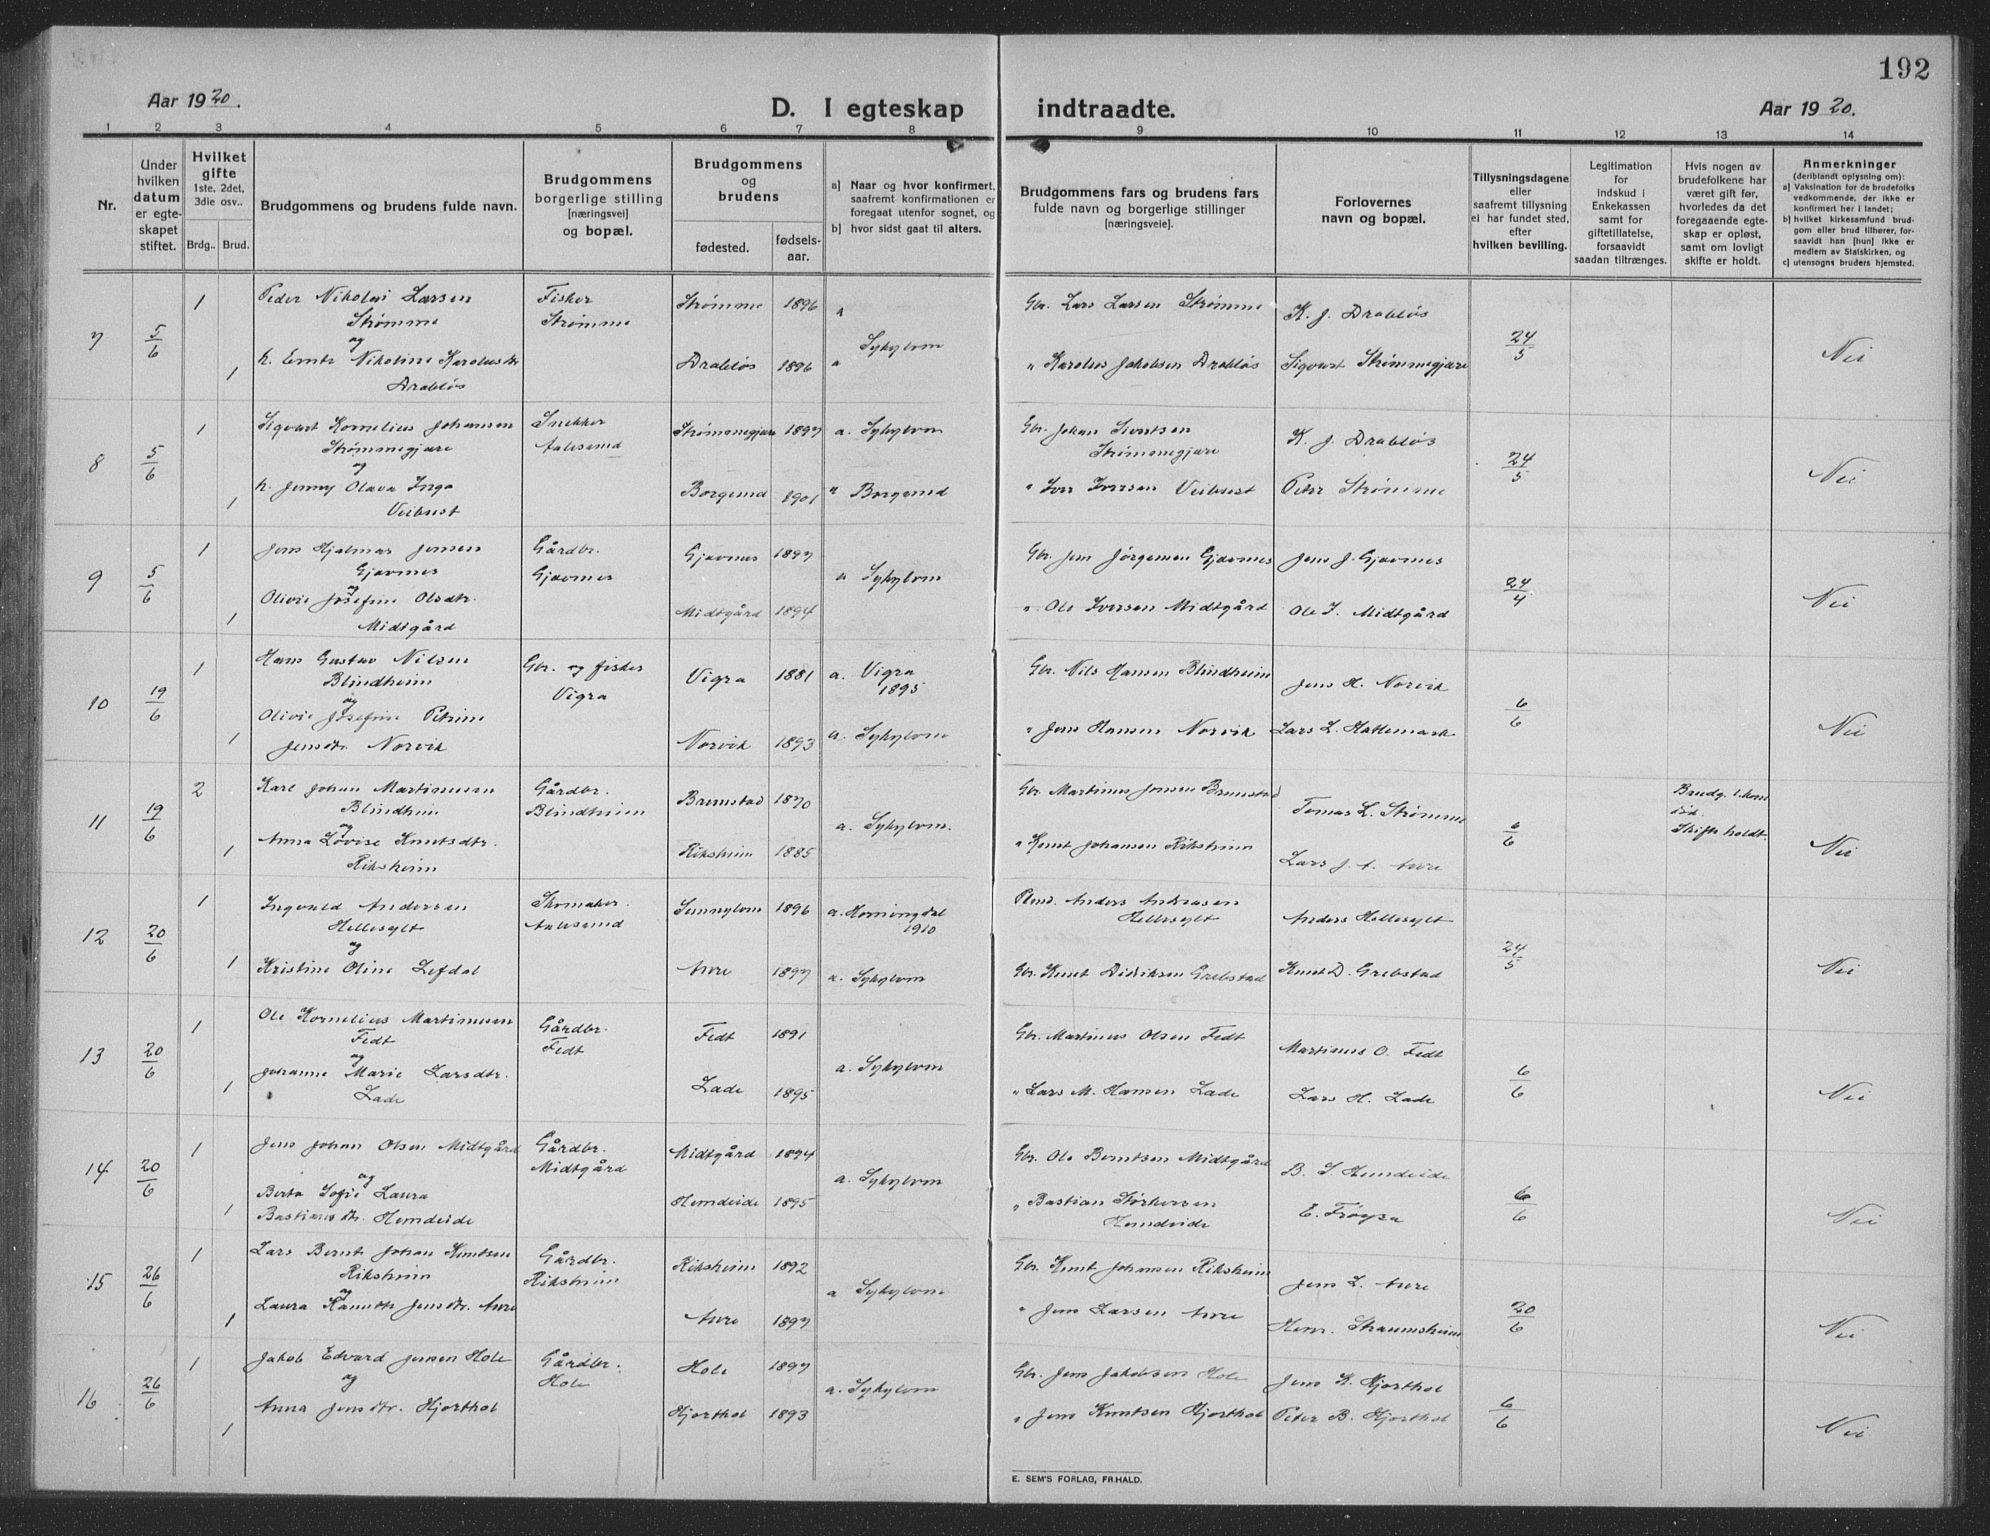 192
Aar 1920.
D. I egteskap indtraadte.
Aar 1920.
1 2 3 4 5 6 7 8 9 10 11 12 13 14
Nr.
Under hvilken datum er egteskapet stiftet.
Hvilket gifte 1ste, 2det, 3die osv..
Brdg.. Brud.
Brudgommens og brudens fulde navn.
Brudgommens borgerlige stilling [næringsvei] og bopæl.
Brudgommens og brudens
fødested. fødselsaar.
a) Naar og hvor konfirmert, saafremt konfirmationen er foregaat utenfor sognet, og
b) hvor sidst gaat til alters.
Brudgommens fars og brudens fars fulde navn og borgerlige stillinger [næringsveie].
Forlovernes navn og bopæl.
Tillysningsdagene eller saafremt tillysning ei har fundet sted, efter hvilken bevilling.
Legitimation for indskud i Enkekassen samt for giftetillatelse, forsaavidt saadan tiltrænges.
Hvis nogen av brudefolkene har været gift før, hvorledes da det foregaaende egteskap er opløst, samt om lovligt skifte er holdt.
Anmerkninger (deriblandt oplysning om):
a) Vaksination for de brudefolks vedkommende, der ikke er konfirmert her i landet;
b) hvilket kirkesamfund brudgom eller brud tilhører, forsaavidt han [hun] ikke er medlem av Statskirken, og
c) utensogns bruders hjemsted.
7 5/6 1 Peder Nikolai Larsen Fisker Strømme 1896 a Gbr. Lars Larsen Strømme K. J. Drabløs 24/5 Nei
Strømme Strømme
og Sykylven
1 Nikoline Karolusdtr. Drabløs 1896 a " Karolus Jakobsen Drabløs Sigvart Strømmegjære
Drabløs
8 5/6 1 Sigvart Kornelius Johansen Snekker Strømmegjære 1897 a. Sykylven Gbr. Johan Sivertsen K. J. Drabløs 24/5 Nei
Strømmegjære Aalesund Strømmegjære
og
1 Jenny Olava Inga Borgund 1901 " Borgund " Iver Iversen Veibust Peter Strømme
Veibust
9 5/6 1 Jens Hjalmar Jensen Gårdbr. Gjævnes 1897 Gbr. Jens Jørgensen Gjævnes Jens J. Gjævnes 24/4 Nei
Gjævnes Gjævnes a Sykylven
og
1 Olivie Josefine Olsdtr. Midtgård 1894 " Ole Iversen Midtgård Ole I. Midtgård
Midtgård
10 19/6 1 Hans Gustav Nilsen Gbr. og fisker Vigra 1881 a. Vigra Gbr. Nils Hansen Blindheim Jens H. Norvik 6/6 Nei
Blindheim Vigra 1895
og
Olivie Josefine Petrine
1 Jensdtr. Norvik Norvik 1893 a. Sykylven " Jens Hansen Norvik Lars L. Hattemark
11 19/6 2 Karl Johan Martinusen Gårdbr. Brunstad 1870 Gbr. Martinus Jensen Brunstad Tomas L. Strømme 6/6 Brudg. 1. kone Nei
Blindheim Blindheim død.
og a. Sykylven. Skifte holdt.
1 Anna Lovise Knutsdtr. Riksheim 1885 " Knut Johansen Riksheim
Riksheim
12 20/6 1 Ingvald Andersen Skomaker Sunnylven 1896 a. Horningdal Anders Andreasen Anders Hellesylt 24/5 Nei
Hellesylt Aalesund 1910 Hellesylt
og
1 Kristine Oline Lefdal Aure 1897 a. Sykylven Gbr. Knut Didriksen Grebstad Knut D. Grebstad
13 20/6 1 Ole Kornelius Martinusen Gårdbr. Fedt 1891 Gbr. Martinus Olsen Fedt Martinus O. Fedt 6/6 Nei
Fedt Fedt
og a. Sykylven
1 Johanne Marie Larsdtr. Lade 1895 " Lars M. Hansen Lade Lars H. Lade
Lade
14 20/6 1 Jens Johan Olsen Midtgård Gårdbr. Midtgård 1894 Gbr. Ole Berntsen Midtgård B. S. Hundeide 6/6 Nei
Midtgård
og a. Sykylven
Berta Sofie Laura Hundeide 1895 " Bastian Størkersen E. Frøysa
1 Bastiansdtr. Hundeide Hundeide
15 26/6 1 Lars Bernt Johan Knutsen Gårdbr. Riksheim 1892 Gbr. Knut Johansen Riksheim Jens L. Aure 20/6 Nei
Riksheim Riksheim
og a Sykylven
1 Laura Jensdtr. Aure Aure 1897 " Jens Larsen Aure Straumsheim
16 26/6 1 Jakob Edvard Jensen Hole Gårdbr. Hole 1897 Gbr. Jens Jakobsen Hole Jens K. Hjorthol 6/6 Nei
og Hole a. Sykylven
1 Anna Jensdtr. Hjorthol Hjorthol 1893 " Jens Knutsen Hjorthol Peter B. Hjorthol
E. SEM'S FORLAG, FR.HALD.